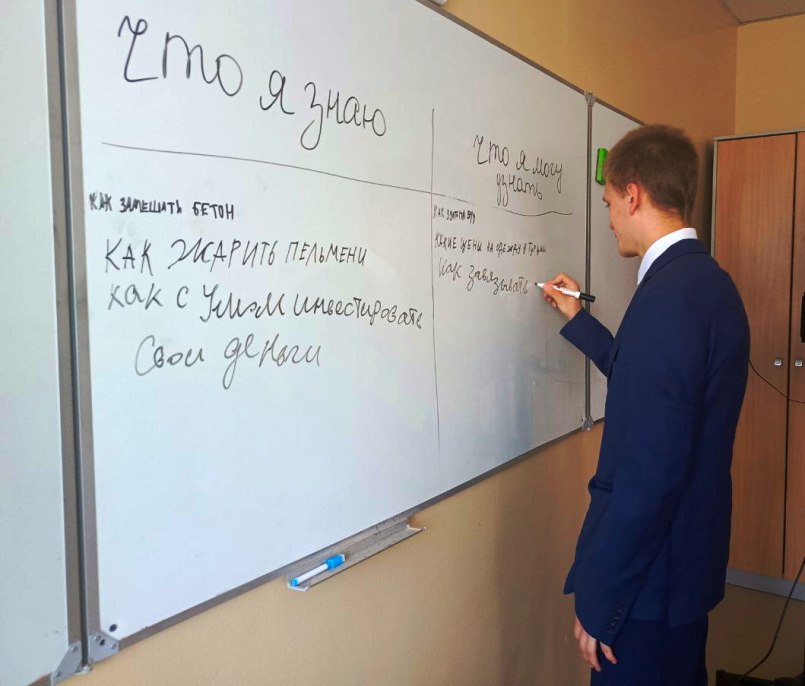 Что я знаю
Что я могу
узнать
КАК ЗАМЕШАТЬ БЕТОН
КАК ЖАРИТЬ ПЕЛЬМЕНИ
КАК С УМОМ ИНВЕСТИРОВАТЬ
Свои деньги
КАК
КАКИЕ ЦЕНЫ НА ОДЕЖДУ В ТУРЦИИ
Как завязывать